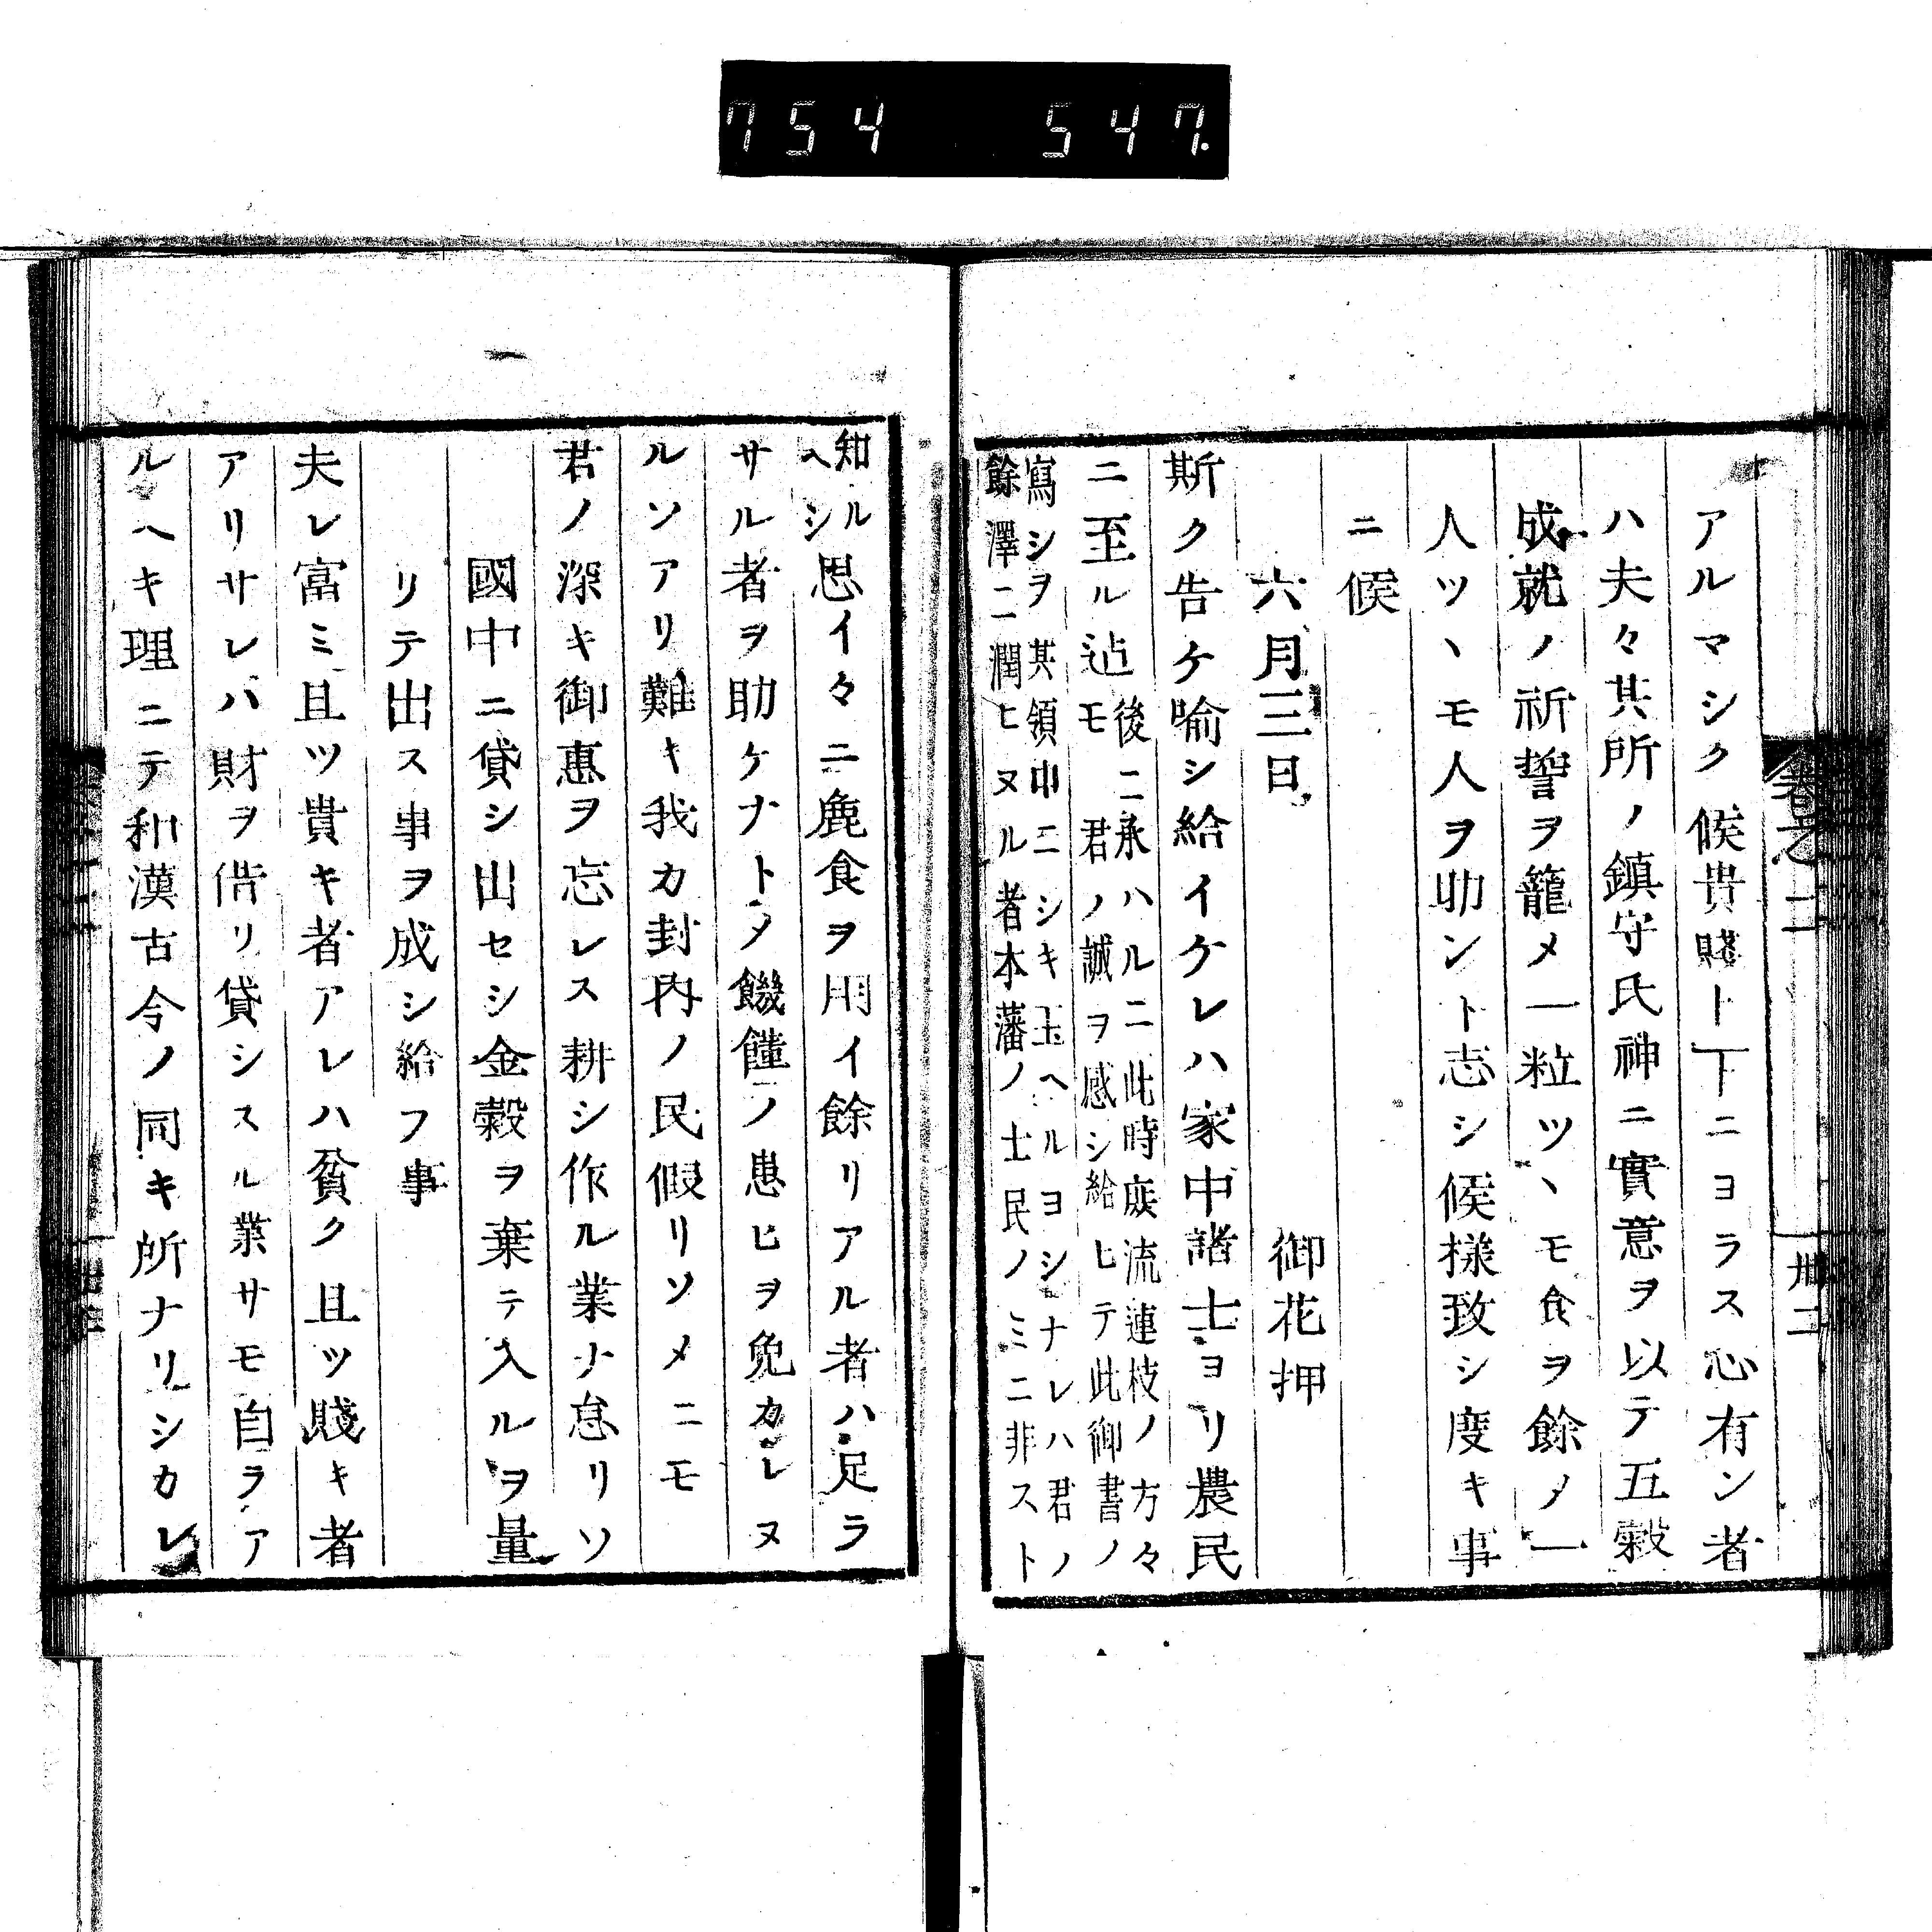 754 547.
卷之二
卅二
アルマシク候貴賤上下ニヨラス心有ン者
ハ夫々其所ノ鎮守氏神ニ實意ヲ以テ五穀
成就ノ祈誓ヲ籠メ一粒ツヽモ食ヲ餘メ一
人ツヽモ人ヲ助ント志シ候様致シ度キ事
ニ候
六月三日
御花押
斯ク告ケ喻シ給イケレハ家中諸士ヨリ農民
ニ至ル迠
モ
後ニ承ハルニ此時庶流連枝ノ方々
君ノ誠ヲ感シ給ヒテ此御書ノ
寫シヲ其領中ニシキ玉ヘルヨシナレハ君ノ
餘澤ニ潤ヒヌル者本藩ノ士民ノミニ非スト
知ル
ヘシ
思イ々ニ麁食ヲ用イ餘リアル者ハ足ラ
サル者ヲ助ケナトタ饑饉ノ患ヒヲ免カレヌ
ルソアリ難キ我カ封內ノ民假リソメニモ
君ノ深キ御惠ヲ忘レス耕シ作ル業ナ怠リソ
國中ニ貸シ出セシ金穀ヲ棄テ入ルヲ量
リテ出ス事ヲ成シ給フ事
夫レ富ミ且ツ貴キ者アレハ貧ク且ツ賤キ者
アリサレバ財ヲ借リ貸シスル業サモ自ラア
ルヘキ理ニテ和漢古今ノ同キ所ナリシカレ